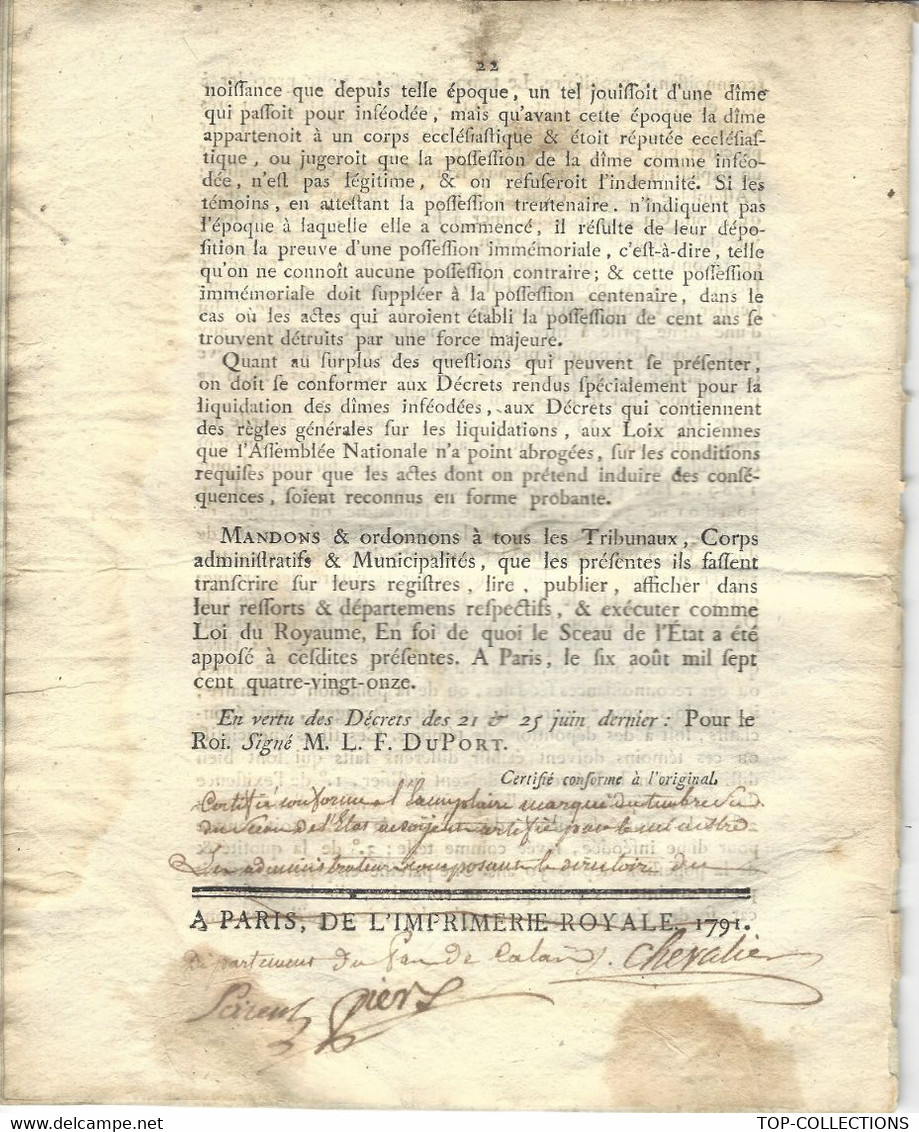 22
noiſſance que depuis telle époque, un tel jouiſſoit d'une dîme
qui paſſoit pour inféodée, mais qu'avant cette époque la dîme
appartenoit à un corps eccléſiaſtique & étoit réputée eccléſiaſ-
tique, ou jugeroit que la poſſeſſion de la dîme comme inféo-
dée, n'eſt pas légitime, & on refuſeroit l'indemnité. Si les
témoins, en atteſtant la poſſeſſion trentenaire, n'indiquent pas
l'époque à laquelle elle a commencé, il réſulte de leur dépo-
ſition la preuve d'une poſſeſſion immémoriale, c'eſt-à-dire, telle
qu'on ne connoît aucune poſſeſſion contraire; & cette poſſeſſion
immémoriale doit ſuppléer à la poſſeſſion centenaire, dans le
cas où les actes qui auroient établi la poſſeſſion de cent ans ſe
trouvent détruits par une force majeure.
Quant au ſurplus des queſtions qui peuvent ſe préſenter,
on doit ſe conformer aux Décrets rendus ſpécialement pour la
liquidation des dîmes inféodées, aux Décrets qui contiennent
des règles générales ſur les liquidations, aux Loix anciennes
que l'Aſſemblée Nationale n'a point abrogées, ſur les conditions
requiſes pour que les actes dont on prétend induire des conſé-
quences, ſoient reconnus en forme probante.
MANDONS & ordonnons à tous les Tribunaux, Corps
adminiſtratifs & Municipalités, que les préſentes ils faſſent
tranſcrire ſur leurs regiſtres, lire, publier, afficher dans
leur reſſorts & départemens reſpectifs, & exécuter comme
Loi du Royaume, En foi de quoi le Sceau de l'État a été
appoſé à ceſdites préſentes. A Paris, le ſix août mil ſept
cent quatre-vingt-onze.
En vertu des Décrets des 21 & 25 juin dernier: Pour le
Roi. Signé M. L. F. DUPORT.
Certifié conforme à l'original.
Certifié conforme a l'Exemplaire marqué du timbre
du Sceau de l'Etat certifié par le ministre
Les administrateurs composant le directoire du
A PARIS, DE L'IMPRIMERIE ROYALE. 1791.
Departement du Pas de Calais. Chevalier
TOP-COLLECTIONS
www.delcampe.net